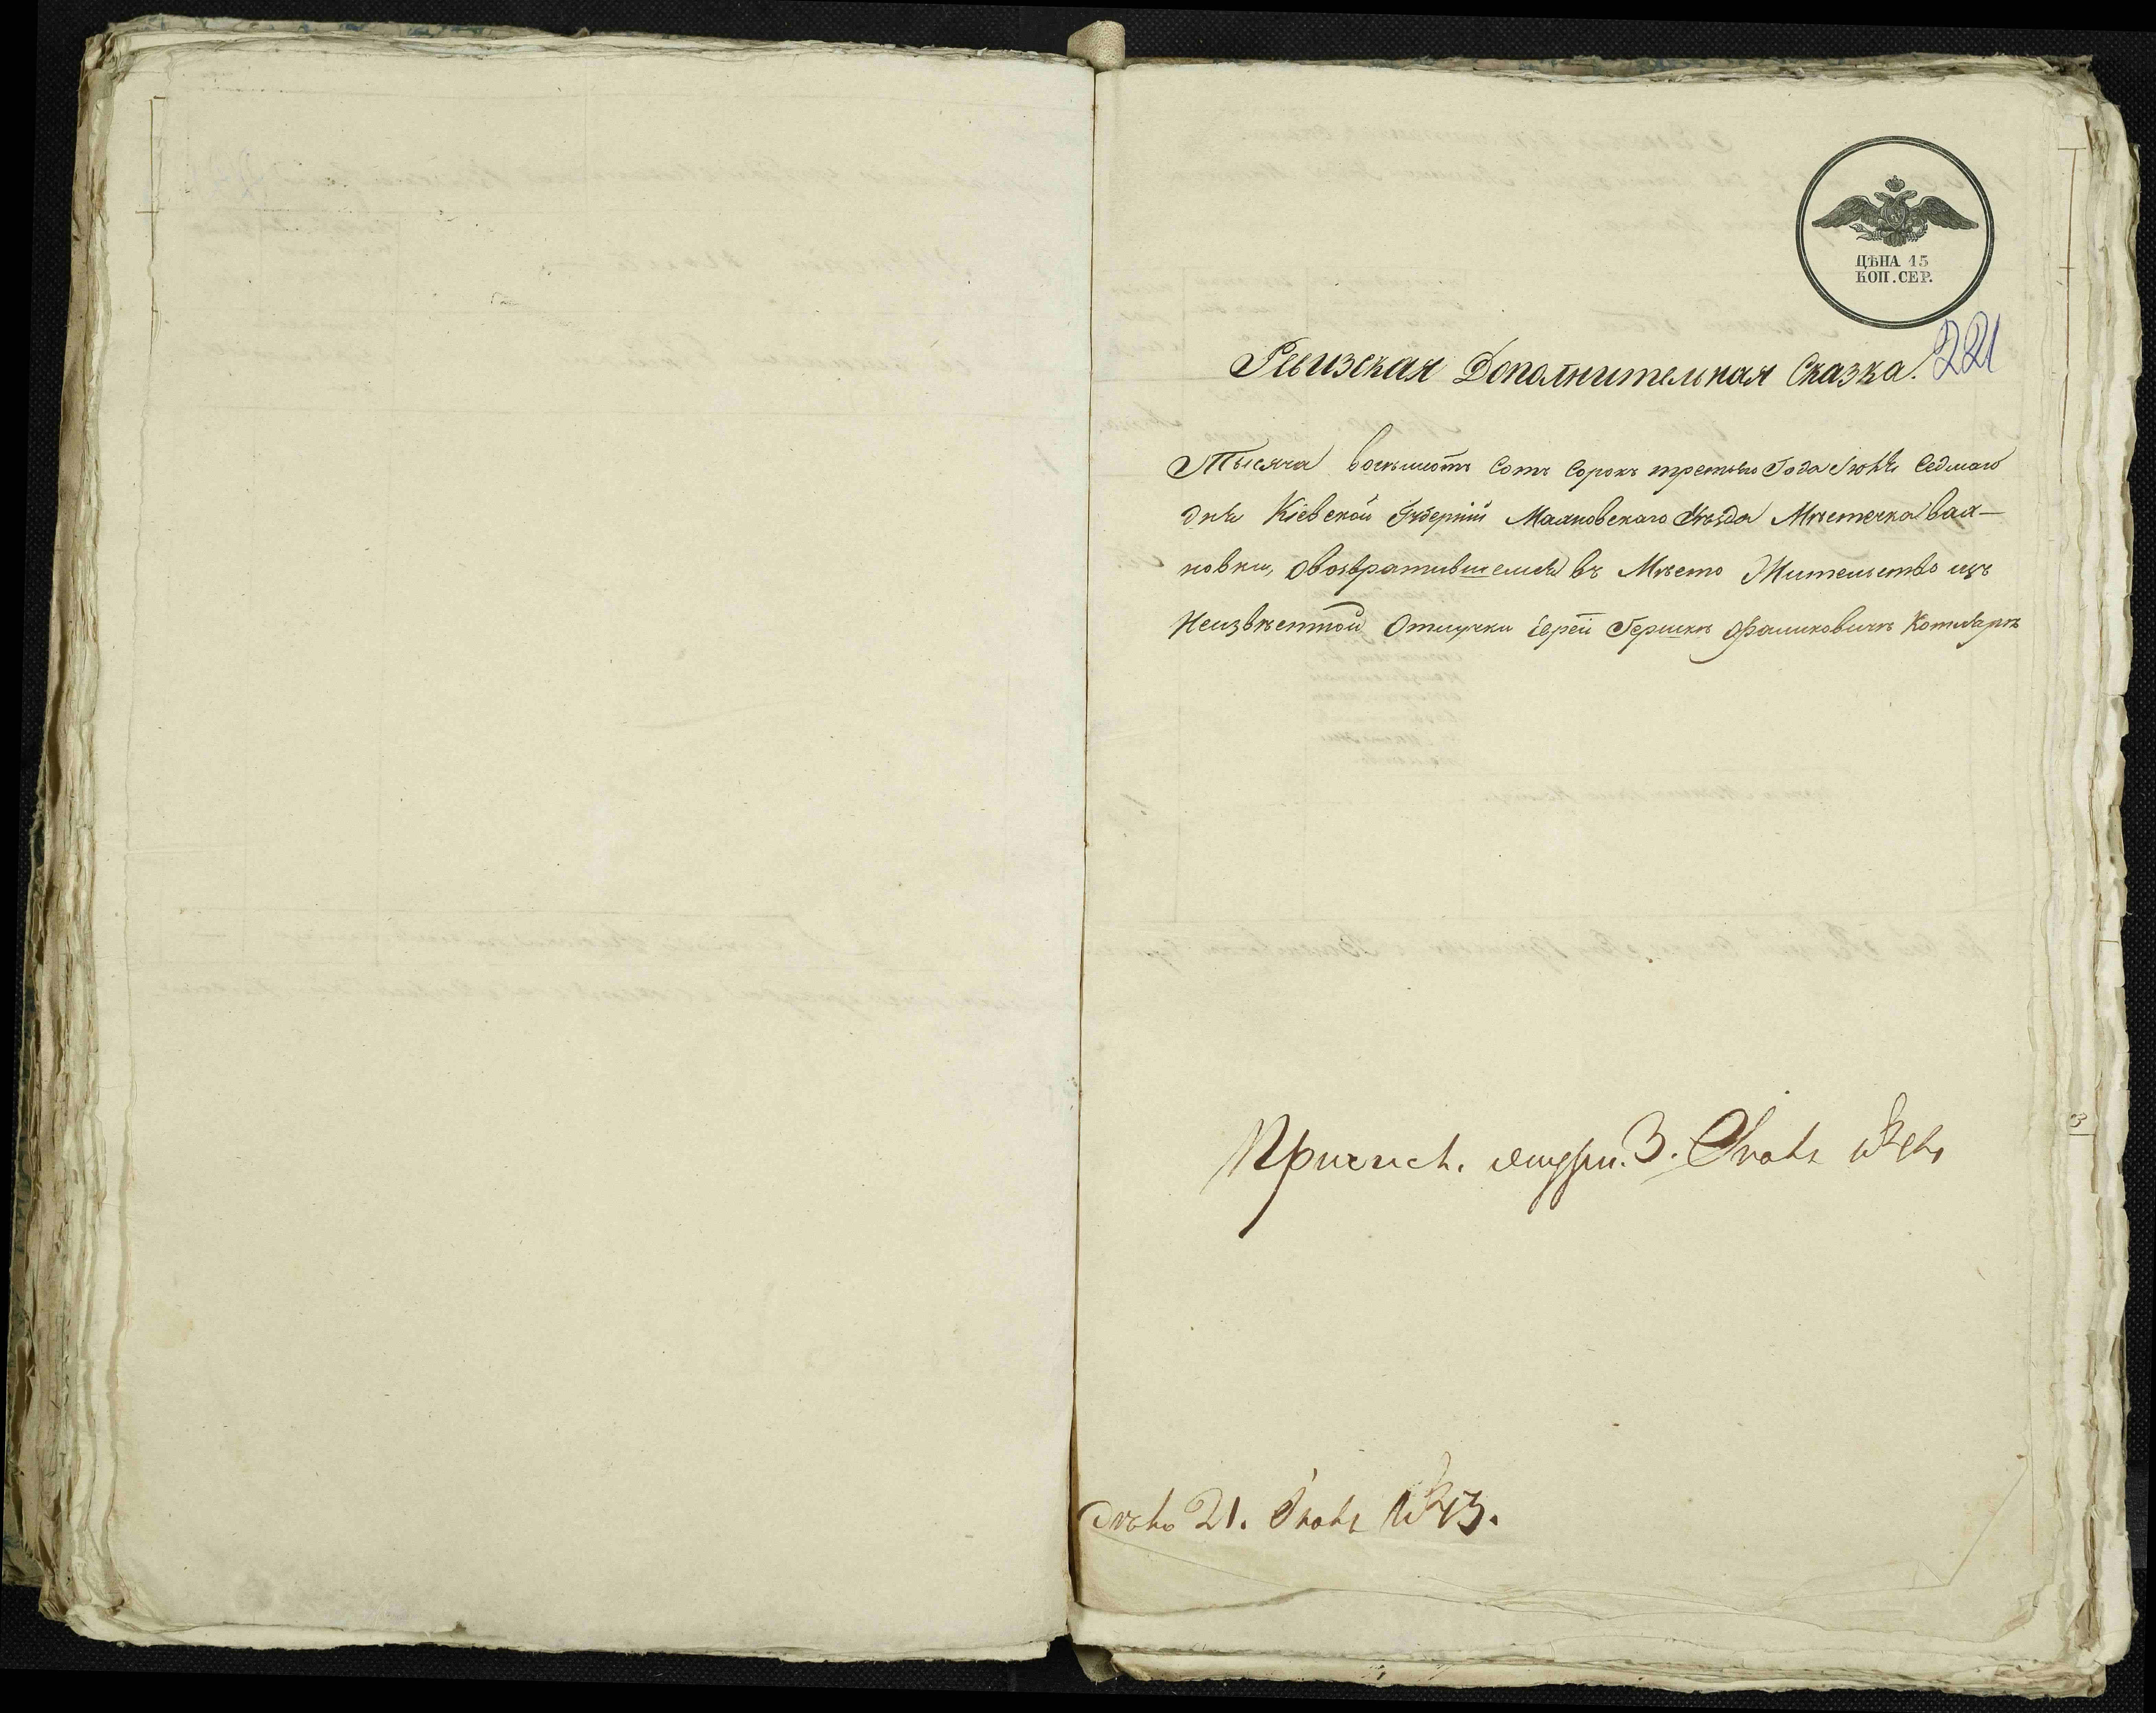 ЦѢНА 15
КОП. СЕР.
221
Ревизская Дополнительная Сказка.
Тысяча восемьсотъ Сотъ Сорокъ третьего Года Іюня Седмаго
дня Кіевской Губерніи Махновскаго Уѣзда Мѣстечка вах-
новки, Овозвратившемся въ Мѣсто Жительство изъ
Неизвѣстной Отлучки Еврей Гершкѣ Котлярѣ
3
21. 1843.